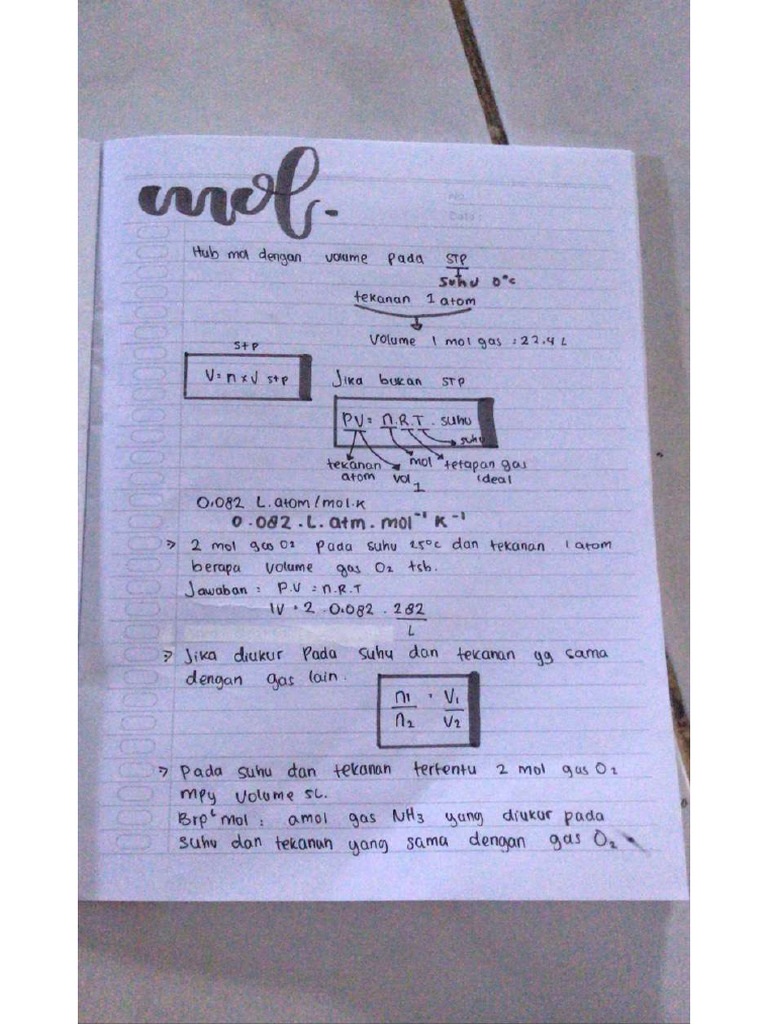 mol.
No
Date:
Hub mol dengan volume pada STP
suhu 0°C
tekanan 1 atom
Volume 1 mol gas : 22.4 L
stp
V = n x V stp
Jika bukan STP
PV = n.R.T. suhu
suhu
tekanan mol tetapan gas
atom vol ideal
1
0.082 L.atom/mol.k
0.082.L.atm.mol⁻¹ K⁻¹
→ 2 mol gas O2 pada suhu 25°C dan tekanan 1 atom
berapa volume gas O2 tsb.
Jawaban : P.V = n.R.T
1V = 2 . 0.082 . 282
L
→ Jika diukur Pada suhu dan tekanan yg sama
dengan gas lain.
n1 = V1
n2 V2
→ Pada suhu dan tekanan tertentu 2 mol gas O2
mpy volume 5L.
Brp mol : amol gas NH3 yang diukur pada
suhu dan tekanan yang sama dengan gas O2